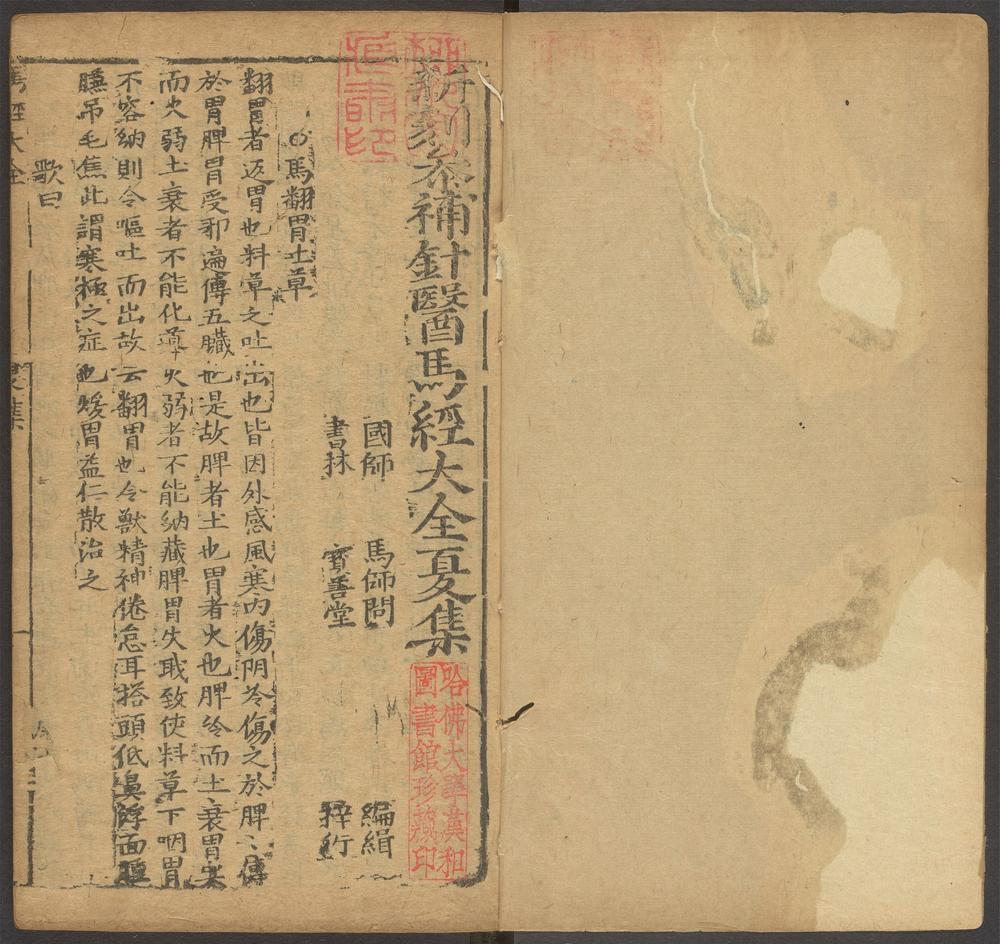 新刻參補針醫馬經大全夏集
國師　馬師問　編緝
書林　寳善堂　梓行
○馬翻胃吐草
翻胃者返胃也料草之吐出也皆因外感風寒内傷阴冷傷之於脾〻傳
於胃脾胃受邪遍傅五臟也是故脾者土也胃者火也脾冷而土衰胃
而火弱土衰者不能化導火弱者不能納藏脾胃失職致使料草下咽胃
不容納則令嘔吐而出故云翻胃也令獸精神倦怠耳搭頭低鼻浮面
臕吊毛焦此謂寒極之症也煖胃益仁散治之
歌曰
馬經大全
夏集
哈佛大學漢和
圖書館珍藏印